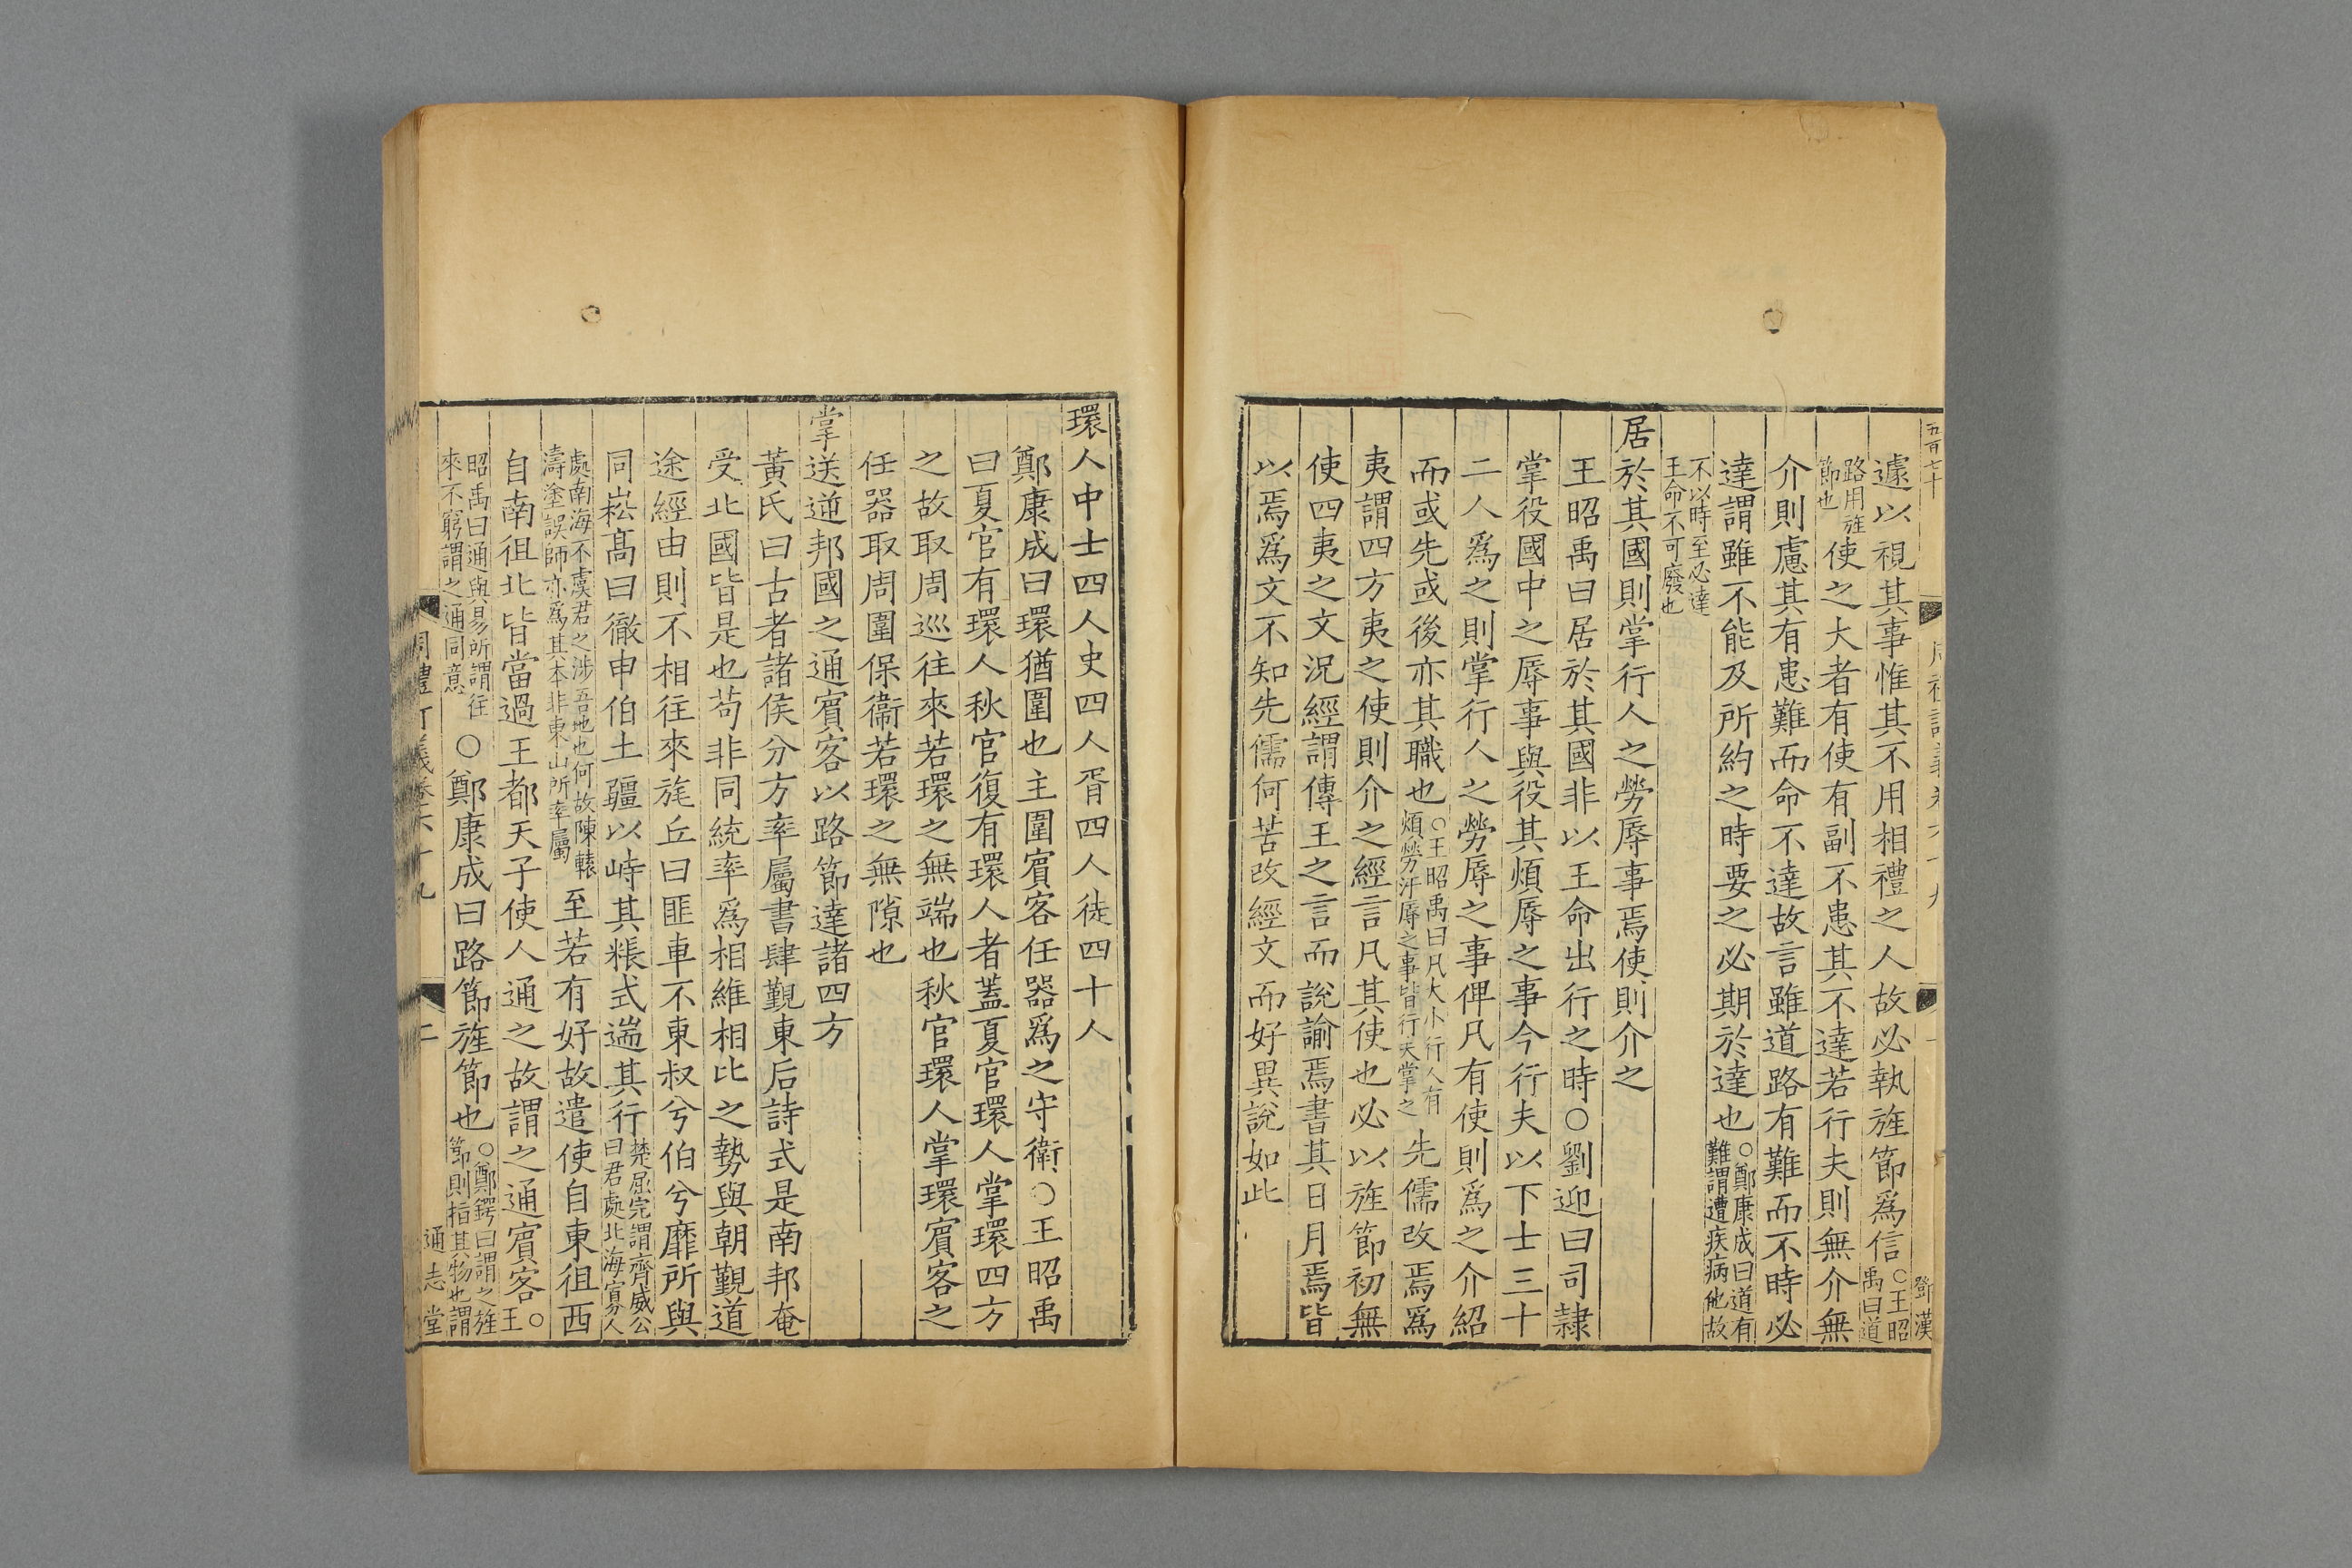 五百七十
鄧漢
遽以視其事惟其不用相禮之人故必執旌節爲信○王昭禹曰道
路用旌節也使之大者有使有副不患其不達若行夫則無介無
介則慮其有患難而命不達故言雖道路有難而不時必
達謂雖不能及所約之時要之必期於達也○鄭康成曰道有難謂遭疾病他故
不以時至必達王命不可廢也
居於其國則掌行人之勞辱事焉使則介之
王昭禹曰居於其國非以王命出行之時○劉迎曰司隸
掌役國中之辱事與役其煩辱之事今行夫以下士三十
二人爲之則掌行人之勞辱之事俾凡有使則爲之介紹
而或先或後亦其職也○王昭禹曰凡大小行人有煩勞汙辱之事皆行夫掌之先儒改焉爲
夷謂四方夷之使則介之經言凡其使也必以旌節初無
使四夷之文況經謂傳王之言而說諭焉書其日月焉皆
以焉爲文不知先儒何苦改經文而好異說如此
環人中士四人史四人胥四人徒四十人
鄭康成曰環猶圍也主圍賓客任器爲之守衛○王昭禹
曰夏官有環人秋官復有環人者蓋夏官環人掌環四方
之故取周巡往來若環之無端也秋官環人掌環賓客之
任器取周圍保衞若環之無隙也
掌送逆邦國之通賓客以路節達諸四方
黃氏曰古者諸侯分方率屬書肆覲東后詩式是南邦奄
受北國皆是也苟非同統率爲相維相比之勢與朝覲道
途經由則不相往來旄丘曰匪車不東叔兮伯兮靡所與
同崧高曰徹申伯土疆以峙其粻式遄其行楚屈完謂齊威公曰君處北海寡人
處南海不虞君之涉吾地也何故陳轅濤塗誤師亦爲其本非東山所率屬至若有好故遣使自東徂西
自南徂北皆當過王都天子使人通之故謂之通賓客○王
昭禹曰通與易所謂往來不窮謂之通同意○鄭康成曰路節旌節也○鄭鍔曰謂之旌節則指其物也謂
周禮訂義卷六十九
二
通志堂